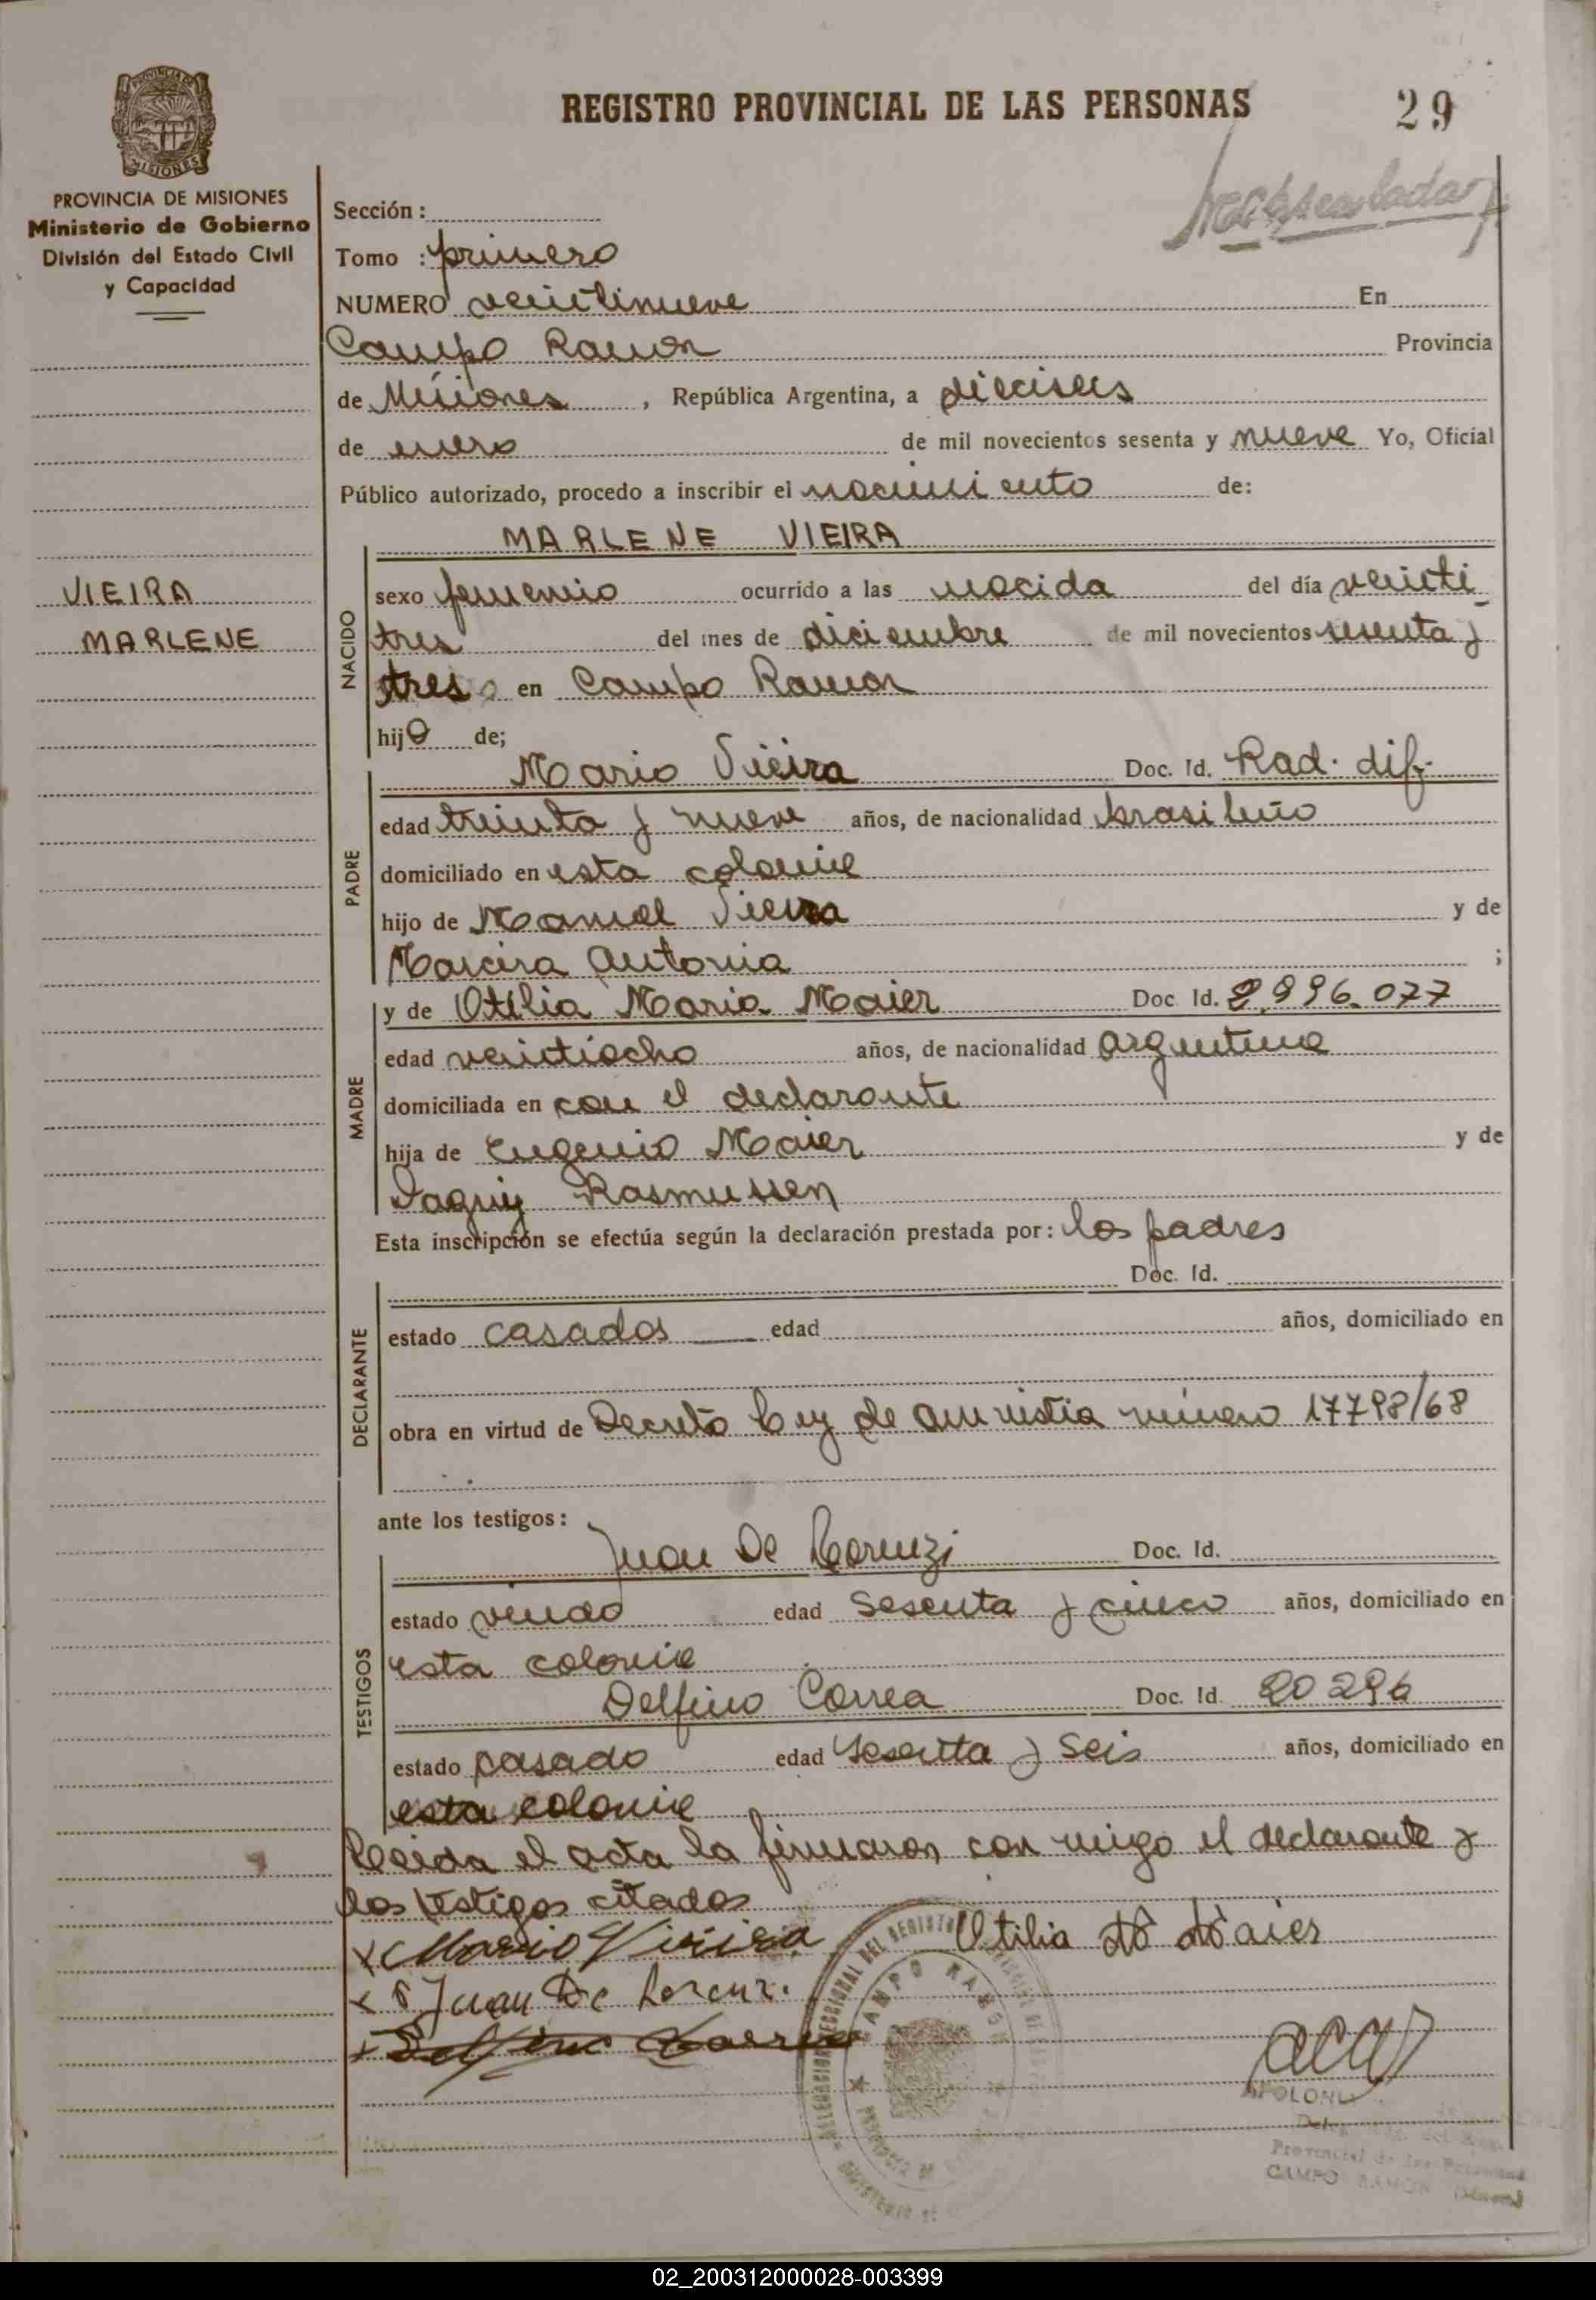 REGISTRO PROVINCIAL DE LAS PERSONAS
29
PROVINCIA DE MISIONES
MISIONES
PROVINCIA DE MISIONES
Ministerio de Gobierno
División del Estado Civil
y Capacidad
VIEIRA
MARLENE
Sección :
Tomo : primero
NUMERO veintinueve En
Campo Ramon Provincia
de Misiones , República Argentina, a dieciseis
de enero de mil novecientos sesenta y nueve Yo, Oficial
Público autorizado, procedo a inscribir el nacimiento de:
MARLENE VIEIRA
NACIDO
sexo femenino ocurrido a las nacida del día veinti
tres del mes de diciembre de mil novecientos sesenta y
tres en Campo Ramon
hija de;
PADRE
Mario Vieira Doc. Id. Rad. dif.
edad treinta y nueve años, de nacionalidad brasileño
domiciliado en esta colonia
hijo de Manuel Vieira y de
Antonia ;
MADRE
y de Otilia Maria Maier Doc. Id. 2.996.077
edad veintiocho años, de nacionalidad argentina
domiciliada en con el declarante
hija de Eugenio Maier y de
Rasmussen
Esta inscripción se efectúa según la declaración prestada por: los padres
Doc. Id.
DECLARANTE
estado casados edad años, domiciliado en
obra en virtud de Decreto Ley de amnistia número 17798/68
ante los testigos:
TESTIGOS
Juan De Lorenzi Doc. Id.
estado viudo edad sesenta y cinco años, domiciliado en
esta colonia
Delfino Correa Doc. Id. 20296
estado casado edad sesenta y seis años, domiciliado en
esta colonia
Leida el acta la firmaron con migo el declarante y
los testigos citados
Mario Vieira Otilia M. Maier
Juan De Lorenzi
Delfino Correa
CAMPO RAMON
Provincial de las Personas
CAMPO RAMON
02_200312000028-003399